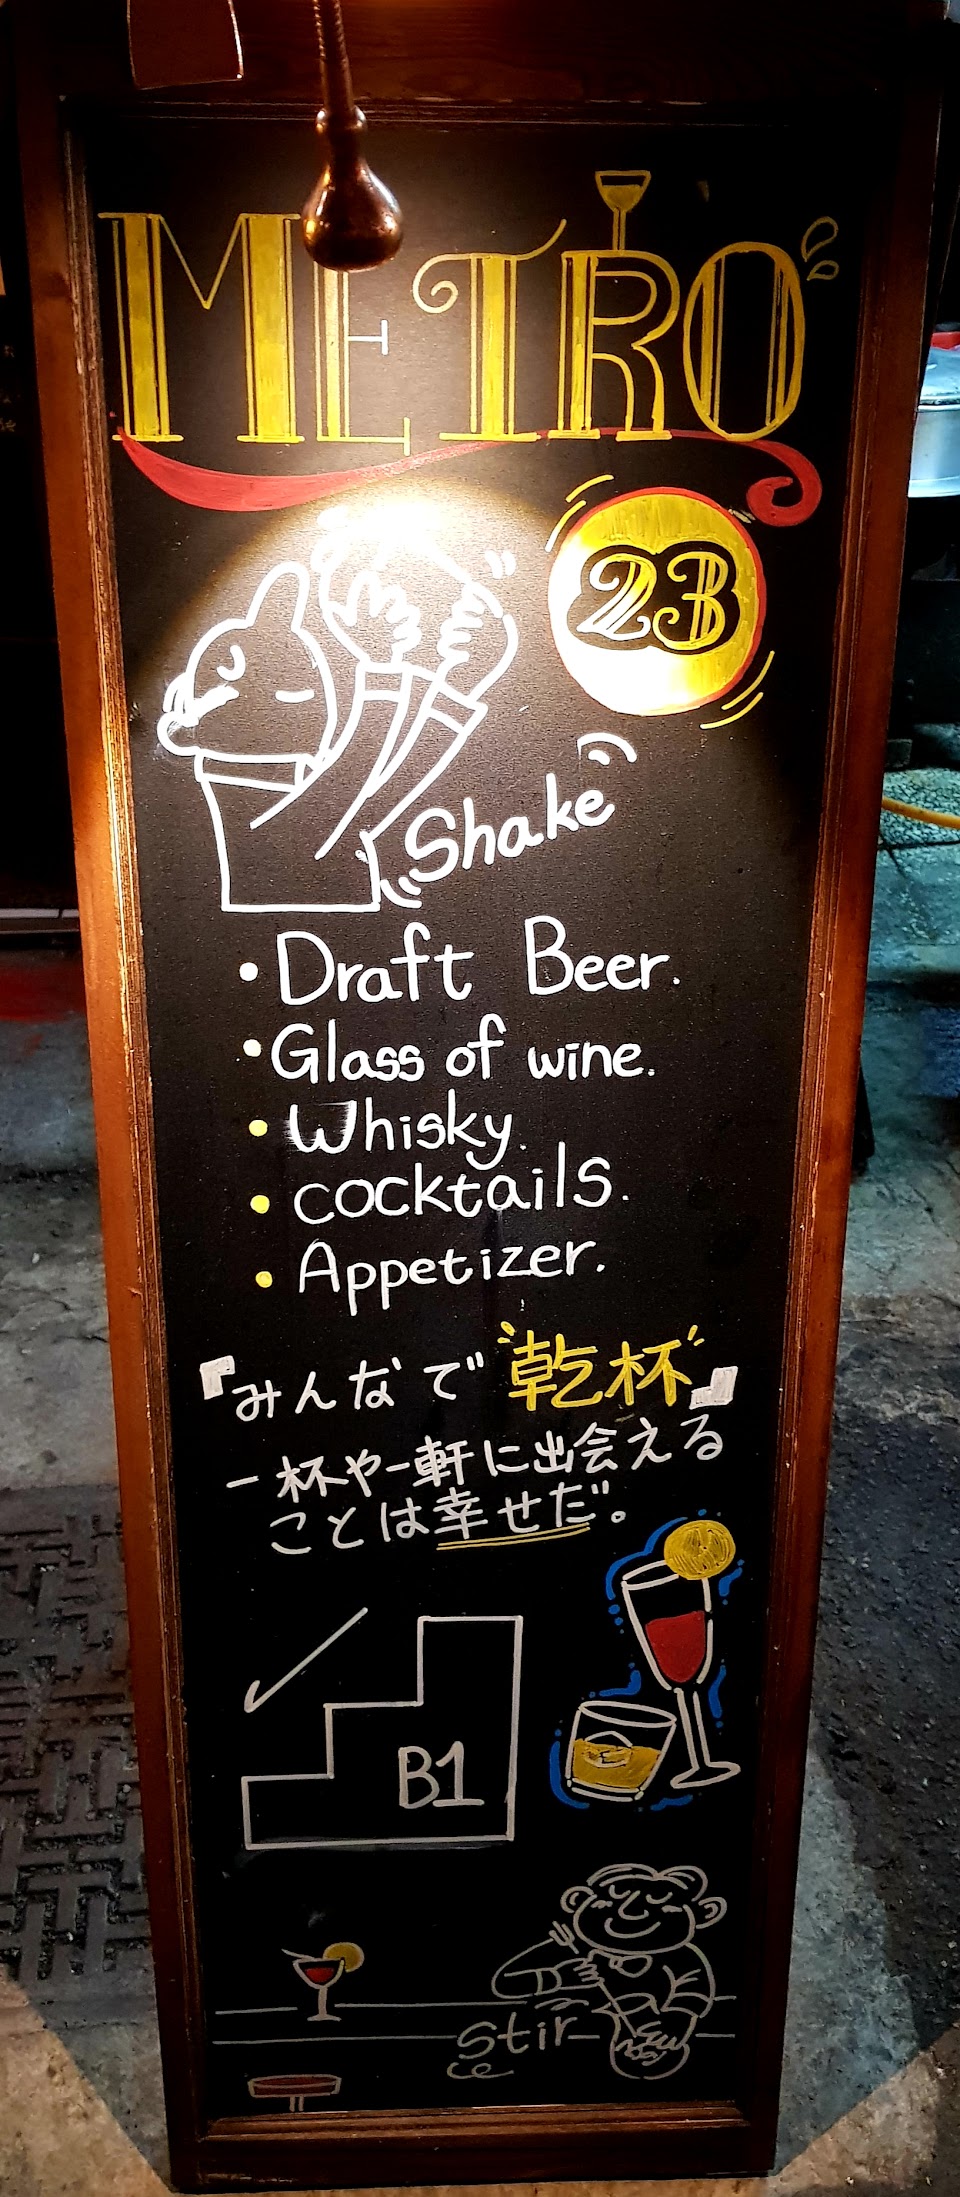 METRO
23
Shake
・Draft Beer.
・Glass of wine.
・Whisky.
・cocktails.
・Appetizer.
『みんなで乾杯』
一杯や一軒に出会える
ことは幸せだ。
B1
Stir